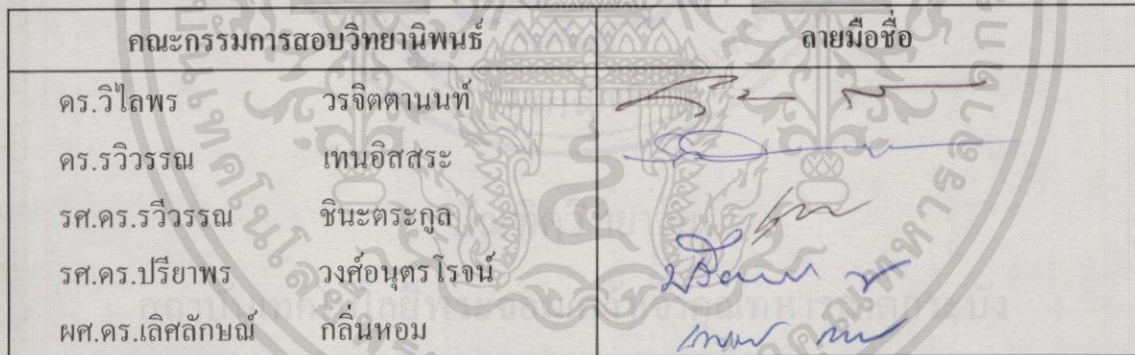 คณะกรรมการสอบวิทยานิพนธ์ ลายมือชื่อ
ดร.วิไลพร วรจิตตานนท์
ดร.รวิวรรณ เทนอิสสระ
รศ.ดร.รวีวรรณ ชินะตระกูล
รศ.ดร.ปรียาพร วงศ์อนุตรโรจน์
ผศ.ดร.เลิศลักษณ์ กลิ่นหอม